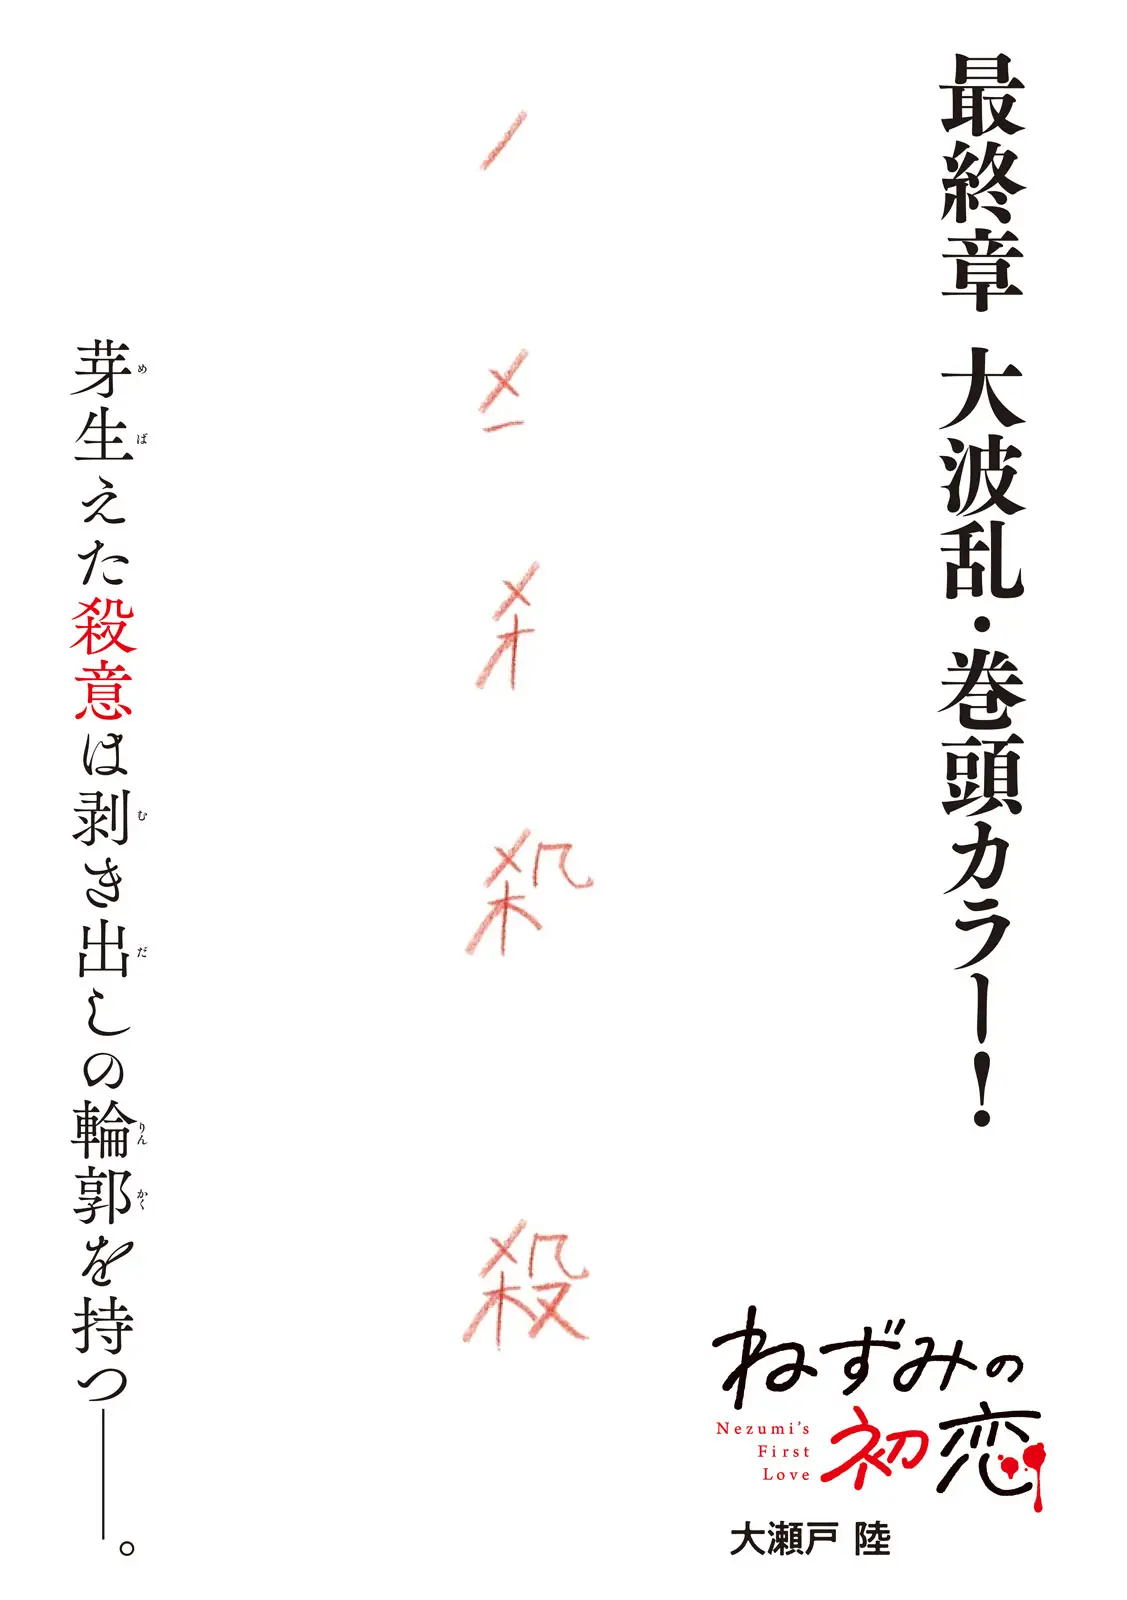 最終章 大波乱・巻頭カラー!
殺
芽生えた殺意は剥き出しの輪郭を持つ――。
ねずみの
初恋
Nezumi's
First
Love
大瀬戸 陸